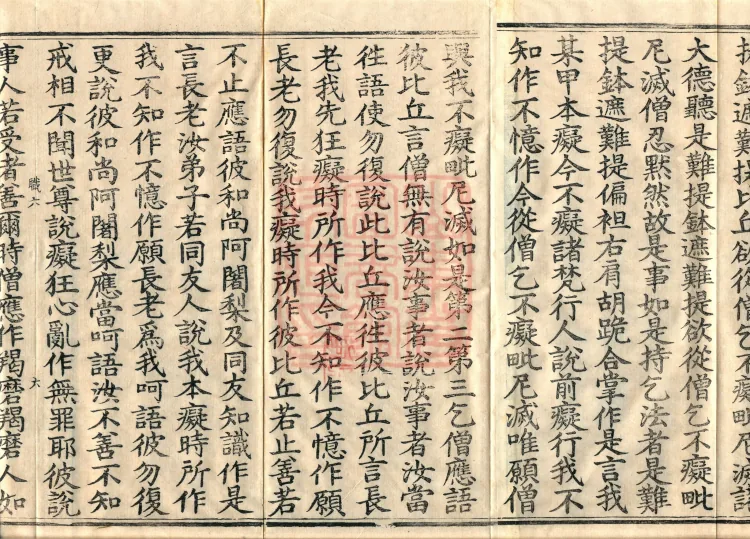 提鉢遮難提比丘欲從僧乞不癡毗尼滅諸
大德聽是難提鉢遮難提欲從僧乞不癡毗
尼滅僧忍默然故是事如是持乞法者是難
提鉢遮難提偏袒右肩胡跪合掌作是言我
某甲本癡今不癡諸梵行人說前癡行我不
知作不憶作今從僧乞不癡毗尼滅唯願僧
與我不癡毗尼滅如是第二第三乞僧應語
彼比丘言僧無有說汝事者說汝事者汝當
徃語使勿復說此比丘應徃彼比丘所言長
老我先狂癡時所作我今不知作不憶作願
長老勿復說我癡時所作彼比丘若止善若
不止應語彼和尚阿闍梨及同友知識作是
言長老汝弟子若同友人說我本癡時所作
我不知作不憶作願長老爲我呵語彼勿復
更說彼和尚阿闍梨應當呵語汝不善不知
戒相不聞世尊說癡狂心亂作無罪耶彼說
職六 六
事人若受者善爾時僧應作羯磨羯磨人如